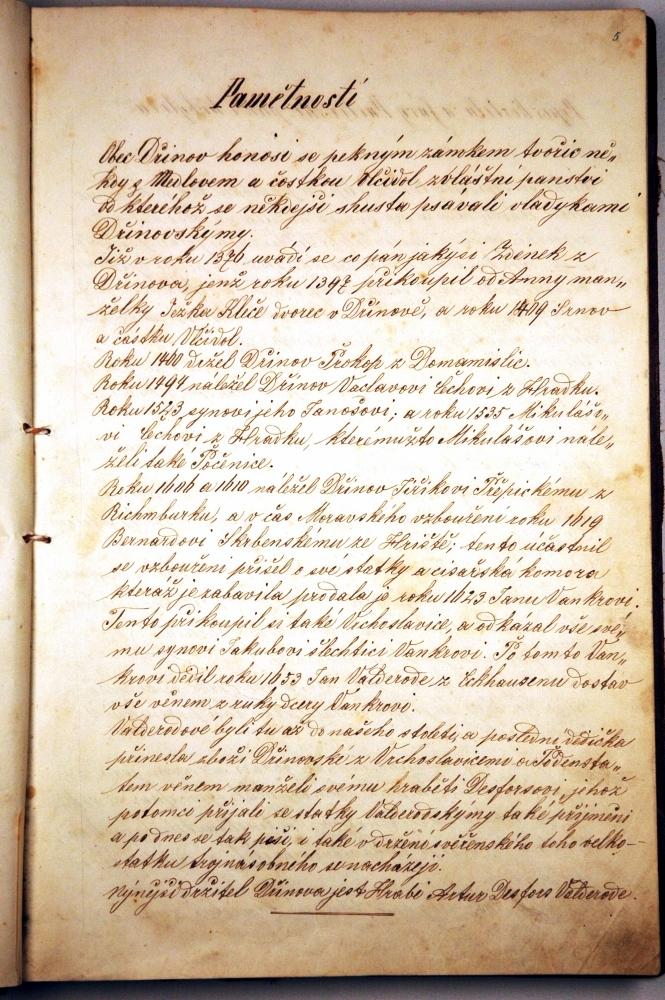 5
Pamětnosti
Obec Dřínov honosí se pekným zámkem tvořic ně„
kdy z Medlovem a částkou Vlčidol zvláštní panství
do kteréhož se někdejší skusta psavali vladykami
Dřínovskými.
Již v roku 1376 uvádí se co pán jakýsi Zdenek z
Dřínova, jenž roku 1397 přikoupil od Anny man„
želky Ježka Kleče dvorec v Dřínově, a roku 1409 Srnov
a částku Vlčidol.
Roku 1460 držel Dřínov Prokop z Domamislic.
Roku 1497 náležel Dřínov Václavovi Čechovi z Hrádku.
Roku 1523 synovi jeho Janošovi; a roku 1535 Mikulášo„
vi Čechovi z Hrádku, kterémužto Mikulášovi nále„
želi také Počenice.
Roku 1606 a 1610 náležel Dřínov Jiříkovi Přepickému z
Richmburku, a v čas Moravského vzbouření roku 1619
Bernardovi Skrbenskému ze Hříště; tento účastnil
se vzbouření přišel o své statky a cisařská komora
kteráž je zabavila prodala je roku 1623 Janu Vankrovi.
Tento přikoupil si také Vrchoslavice, a odkazal vše své„
mu synovi Jakubovi šlechtici Vankrovi. Po tomto Van„
krovi dědil roku 1653 Jan Valderode z Eckhausenu dostav
vše věnem z ruky dcery Vankrovi.
Valderodové byli tu až do našeho století a poslední dědička
přinesla zboží Dřínovské z Vrchoslavicemi a Podensta„
tem věnem manželi svému hraběti Desforsovi, jehož
potomci přijali se statky Valderodskýmy také příjmení
a podnes se tak píší, i také v držení svěřenského toho velko–
statku trojnásobného se nacházejí.
Nynější držitel Dřínova jest Hrabě Artur Desfors Valderode.